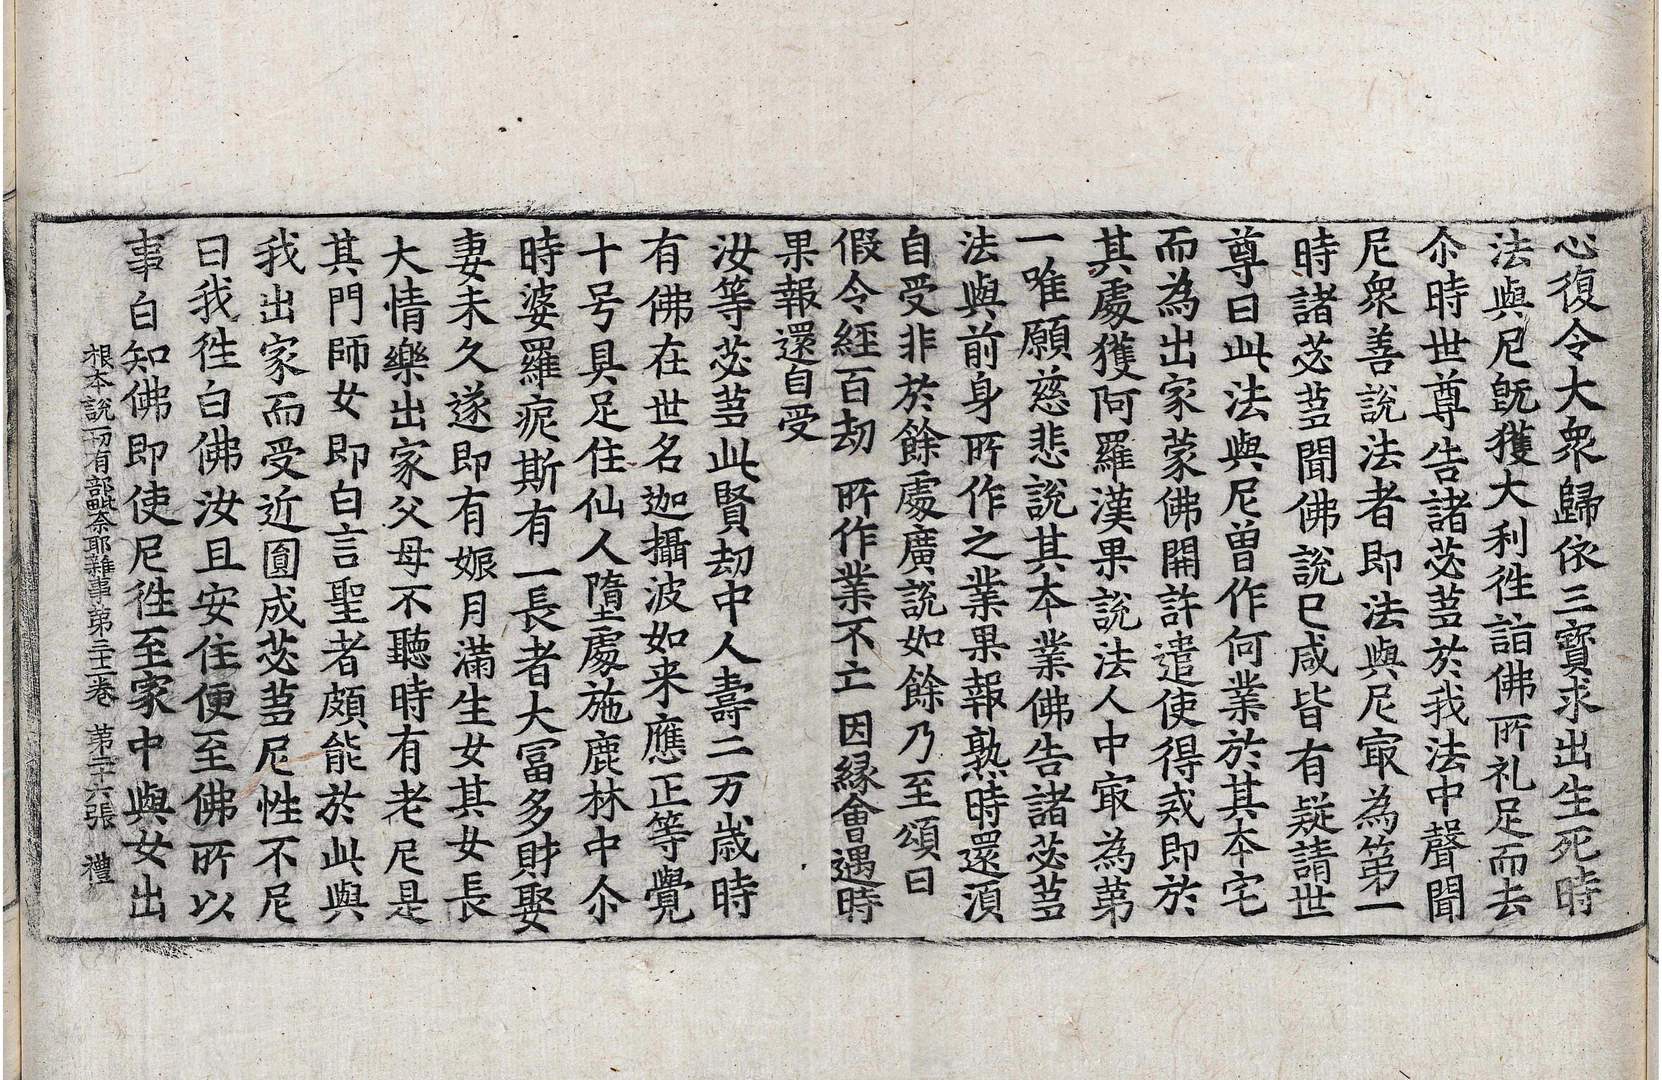 心復令大衆歸依三寶求出生死時
法與尼旣獲大利徃詣佛所礼足而去
尒時世尊告諸苾芻於我法中聲聞
尼衆善說法者即法與尼㝡為第一
時諸苾芻聞佛說已咸皆有疑請世
尊曰此法與尼曾作何業於其本宅
而為出家蒙佛開許遣使得戒即於
其處獲阿羅漢果說法人中㝡為第
一唯願慈悲說其本業佛告諸苾芻
法與前身所作之業果報熟時還湏
自受非於餘處廣說如餘乃至頌曰
假令經百劫 所作業不亡 因緣會遇時
果報還自受
汝等苾芻此賢劫中人壽二万歲時
有佛在世名迦攝波如来應正等覺
十号具足住仙人墮處施鹿林中尒
時婆羅痆斯有一長者大冨多財娶
妻未久遂即有娠月滿生女其女長
大情樂出家父母不聽時有老尼是
其門師女即白言聖者頗能於此與
我出家而受近圓成苾芻尼性不尼
曰我徃白佛汝且安住便至佛所以
事白知佛即使尼徃至家中與女出
根本說一切有部毗奈耶雜事第三十二卷 第二十六張 禮